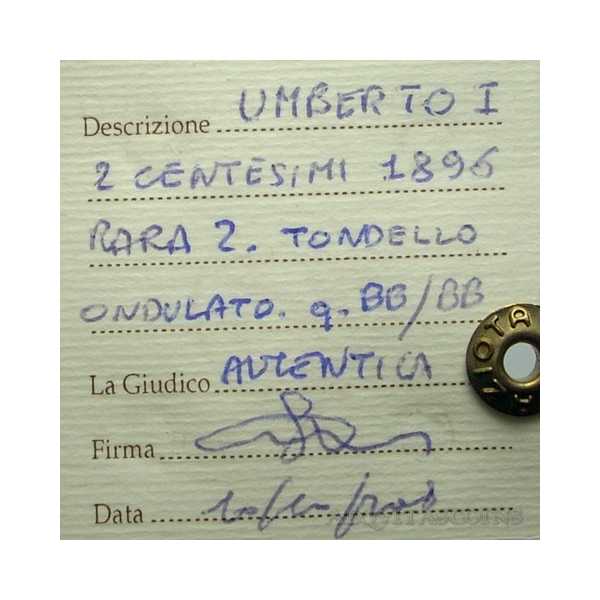 Descrizione UMBERTO I
2 CENTESIMI 1896
RARA 2. TONDELLO
ONDULATO. q. BB/BB
La Giudico AUTENTICA
Firma
Data